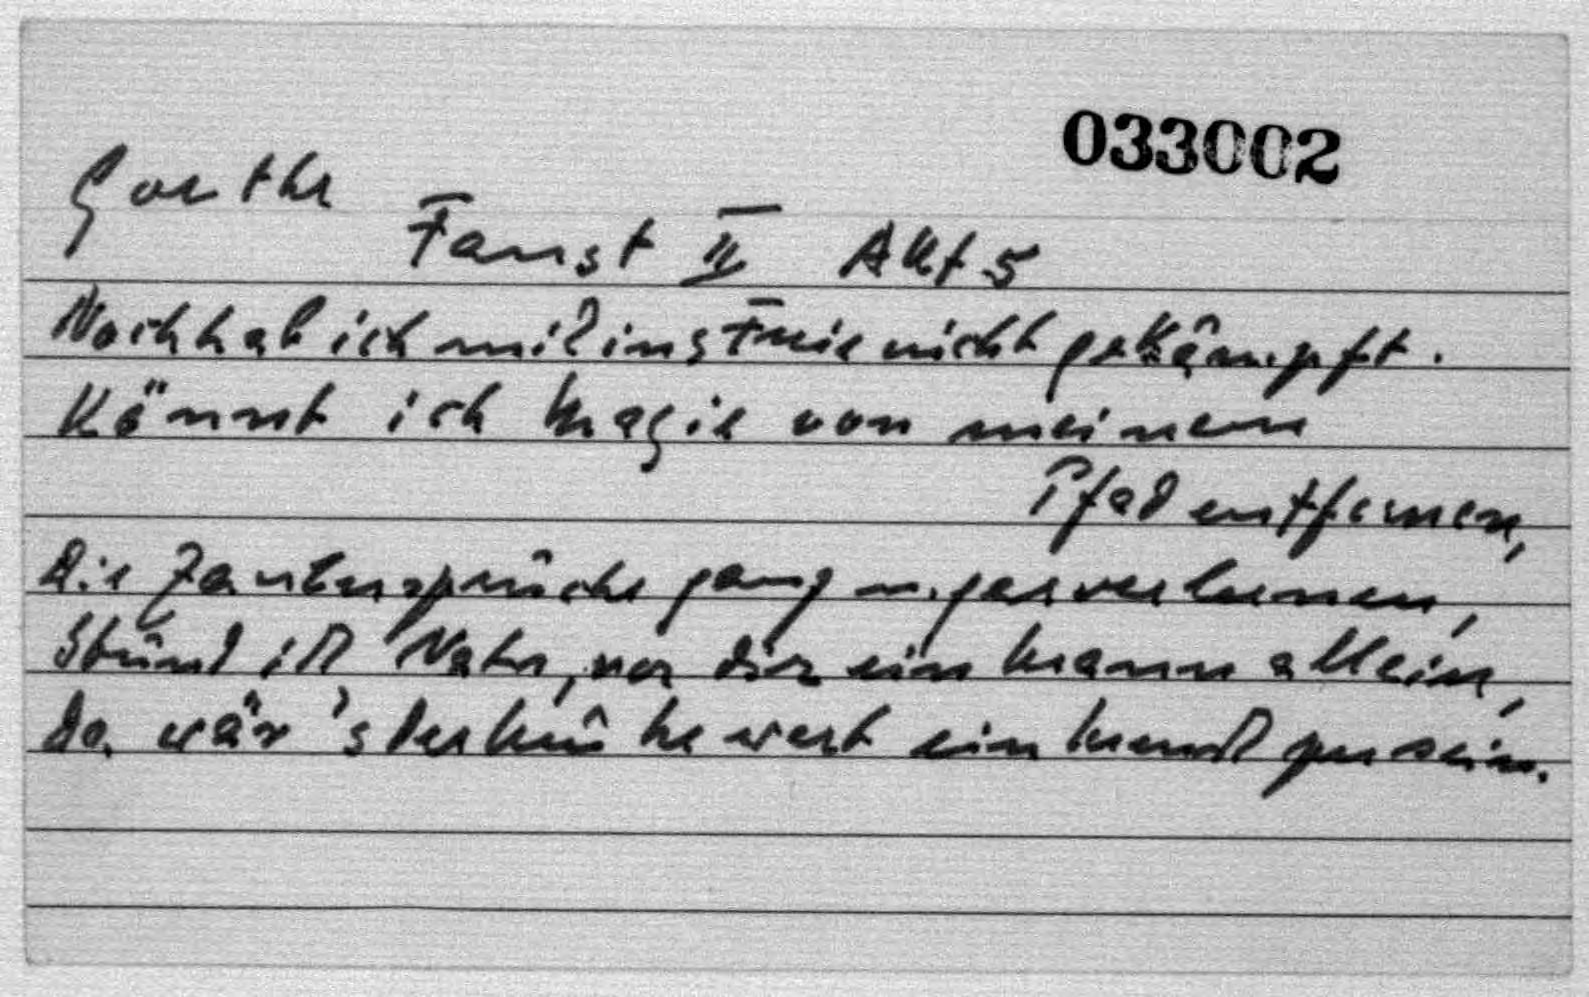 033002
Goethe
Faust II Akt 5
Noch hab ich mich ins Freie nicht gekämpft.
Könnt ich Magie von meinem
Pfad entfernen,
Die Zaubersprüche ganz u. gar verlernen,
Stünd ich Natur, vor dir ein Mann allein,
Da wär's der Mühe wert ein Mensch zu sein.